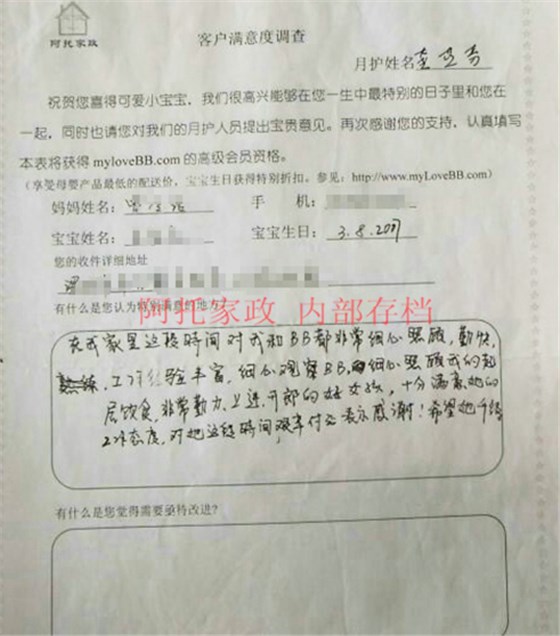 阿托家政
客户满意度调查
月护姓名
祝贺您喜得可爱小宝宝，我们很高兴能够在您一生中最特别的日子里和您在
一起，同时也请您对我们的月护人员提出宝贵意见。再次感谢您的支持，认真填写
本表将获得 myloveBB.com 的高级会员资格。
（享受母婴产品最低的配送价，宝宝生日获得特别折扣。参见：http://www.myLoveBB.com）
妈妈姓名： 手 机：
宝宝姓名： 宝宝生日：3.8.2007
您的收件详细地址
阿托家政 内部存档
有什么是您认为特别满意的地方？
在我家里这段时间对我和BB都非常细心照顾，勤快，
工作经验丰富，细心观察BB，细心照顾我的起
居饮食，非常勤力、上进、开朗的好女孩，十分满意她的
工作态度，对她这段时间艰辛付出表示感谢！希望她
有什么是您觉得需要亟待改进？